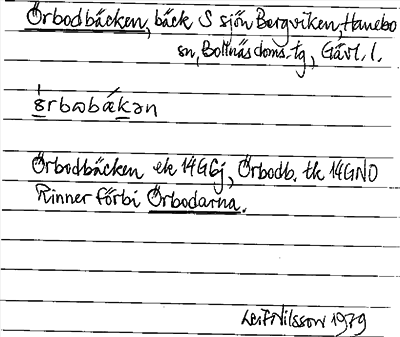 Örbodbäcken, bäck S sjön Bergviken, Hanebo
sn, Bollnäs doms.tg, Gävl. l.
Örbodbäcken ek 14G6j, Örbodb. tk 14GNO
Rinner förbi Örbodarna.
Leif Nilsson 1979